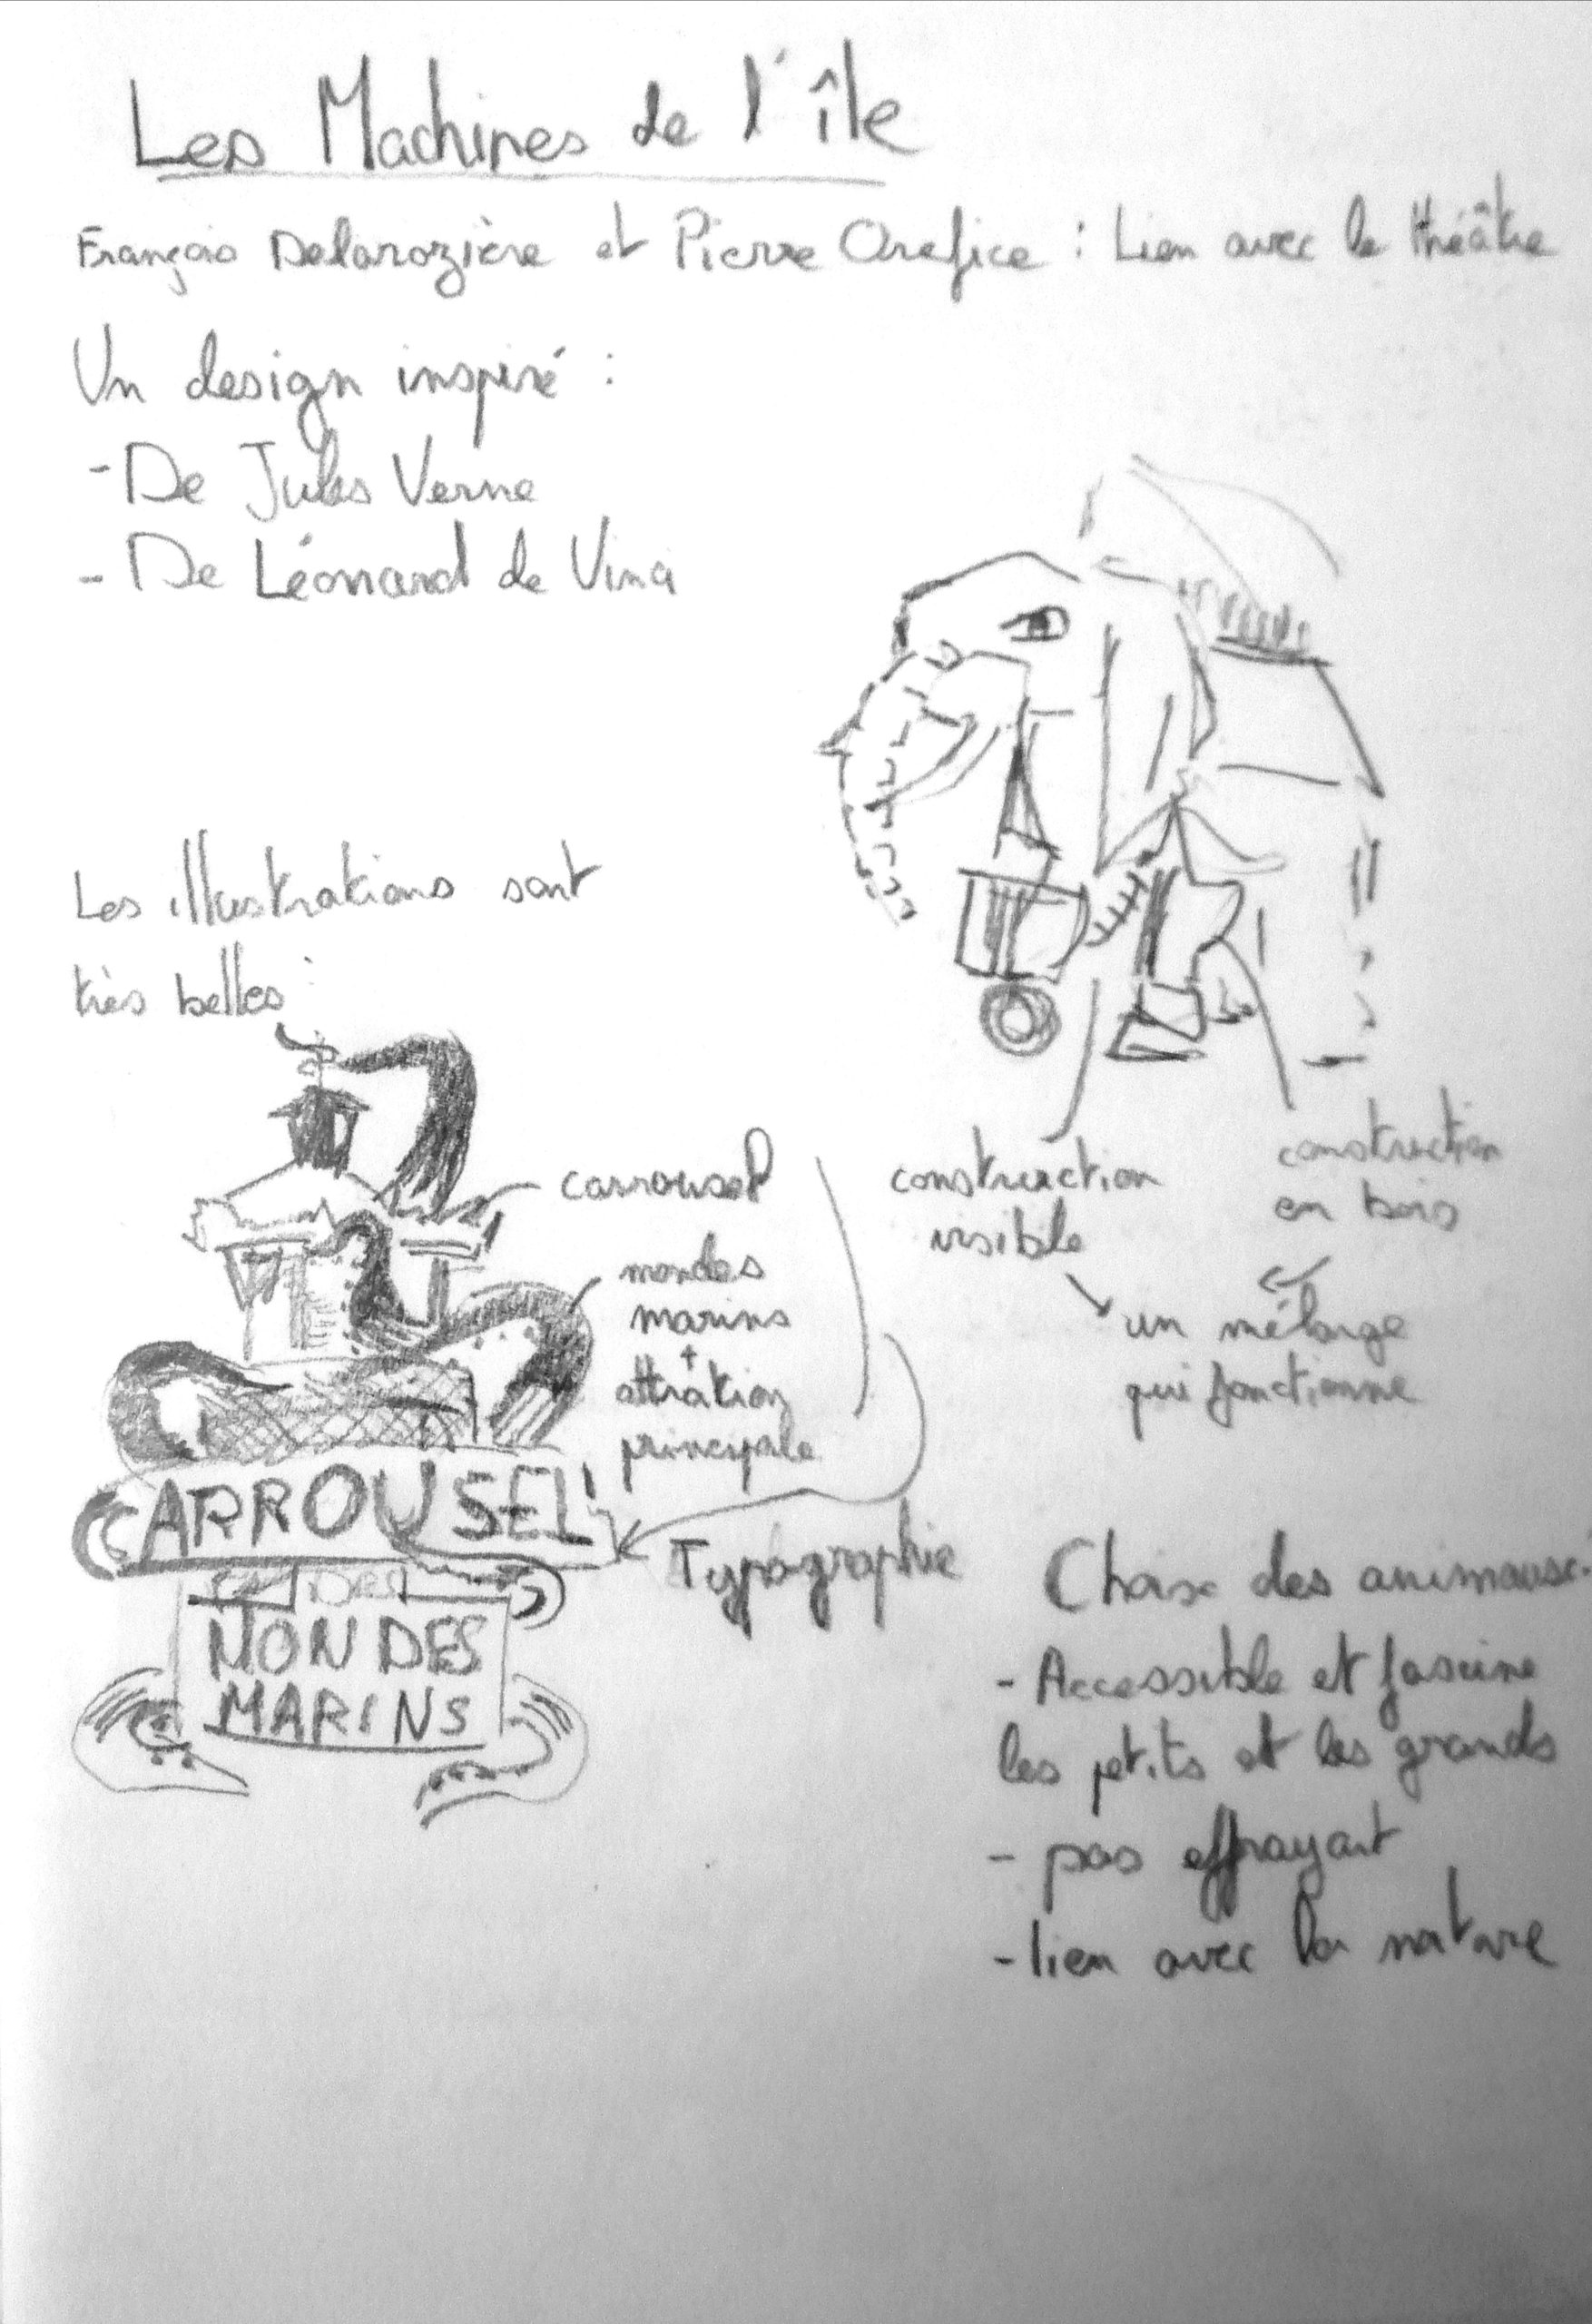 Les Machines de l'île
François Delarozière et Pierre Orefice : Lien avec le théâtre
Un design inspiré :
- De Jules Verne
- De Léonard de Vinci
Les illustrations sont
très belles :
carrousel
mondes
marins
+
attration
principale
construction
visible
construction
en bois
un mélange
qui fonctionne
CARROUSEL
DES
MONDES
MARINS
Typographie
Choix des animaux :
- Accessible et fascine
les petits et les grands
- pas effrayant
- lien avec la nature